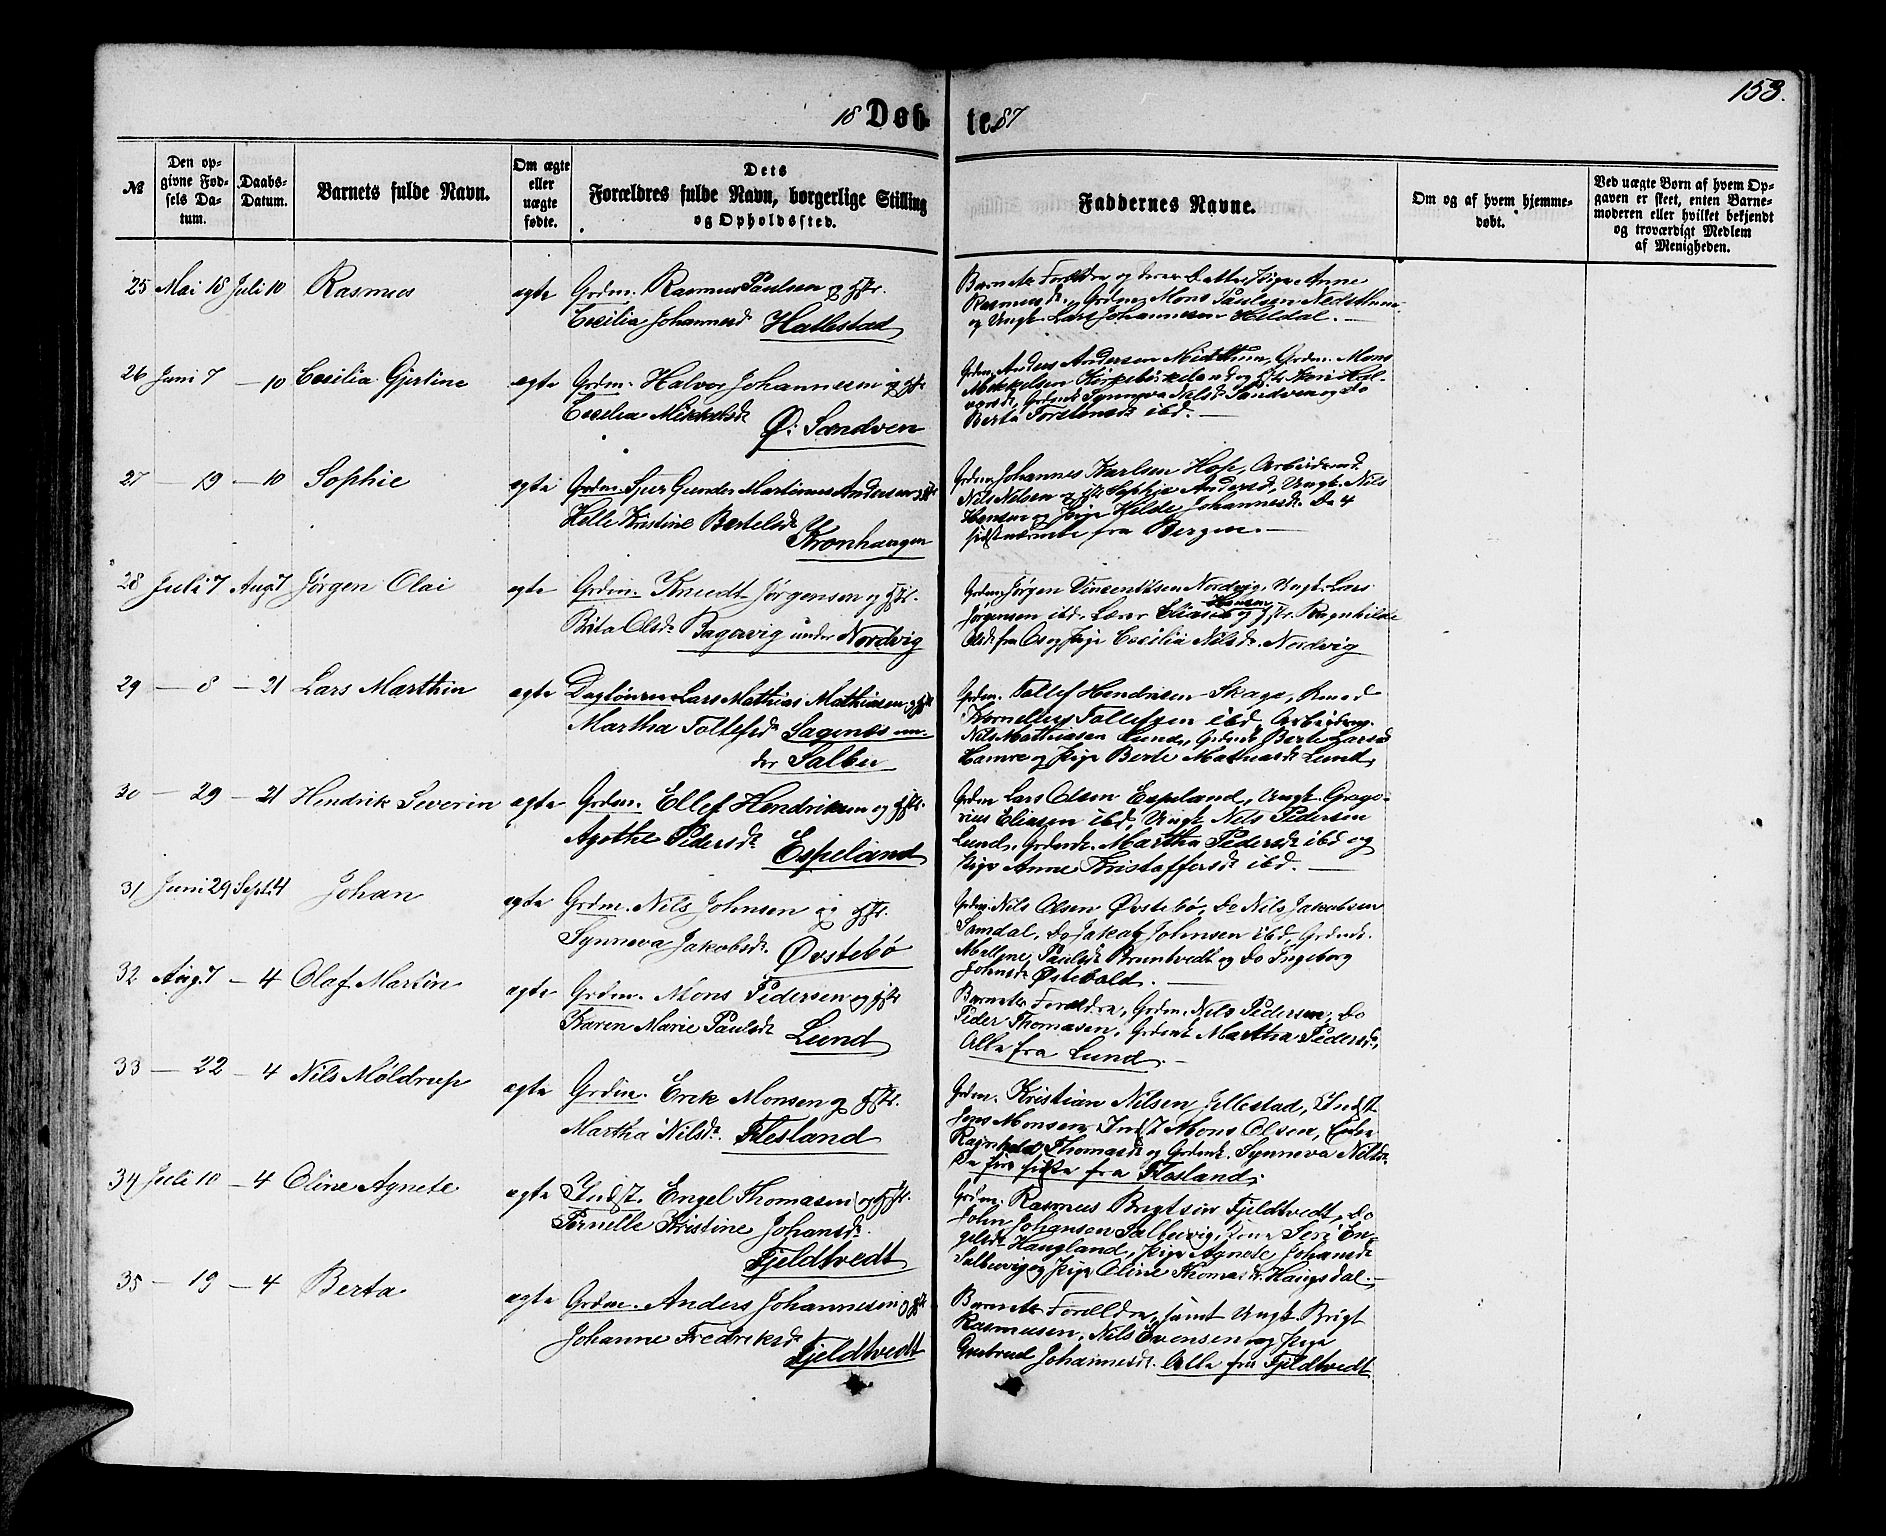 153.
18 Døb- te. 87
№
Den op-
givne Fød-
sels Da-
tum.
Daabs-
Datum.
Barnets fulde Navn.
Om ægte
eller
uægte
fødte.
Dets
Forældres fulde Navn, borgerlige Stilling
og Opholdssted.
Faddernes Navne.
Om og af hvem hjemme-
døbt.
Ved uægte Børn af hvem Op-
gaven er skeet, enten Barne-
moderen eller hvilket bekjendt
og troværdigt Medlem
af Menigheden.
25 Mai 18 Juli 10 Rasmus ægte Grdm. Rasmus Paulsen og Hstr.
Cecilia Johannesd. Hallestad
Barnets Forældre og deres Datter Pige Anne
Rasmusd., Grdm. Mons Paulsen
og Ungk. Lars Johannesen Hildal. —
26 Juni 7 — 10 Cecilia Gjertine ægte Grdm. Halvor Johannesen og Hstr.
Cecilia Mikkelsd. Ø: Sandven
Grdm. Anders Andersen Midtthun, Grdm. Mons
Mikkelsen Kirkebirkeland og Hstr. Kari Hal-
vorsd., Grdmk. Synneva Nilsd. Sandven og Do
Berta Torstensd. ibd. —
27 — 19 — 10 Sophie ægte Grdm. Sjur Gunder Martinus Andersen og Hstr.
Helle Kristine Bertelsd.
Kronhaugen
Grdm. Johannes Karlsen Hope, Arbeidsmd.
Nils Nilsen og Hstr. Sophie Andersd., Ungk. Nils
Hansen og Pige Hilde Johannesd. De 4
sidstnævnte fra Bergen. —
28 Juli 7 Aug. 7 Jørgen Olai ægte Grdm. Knudt Jørgensen og Hstr.
Brita Olsd. Bagervig under Nordvig
Grdm. Jørgen Vincentsen Nordvig, Ungk. Lars
Jørgensen ibd. Lærer Elias Hansen og Hstr. Ragnhilde
Olsd. fra Os og Pige Cecilia Nilsd. Nordvig
29 — 8 — 21 Lars Marthin ægte Daglønner Lars Mathias Mathiasen og Hstr.
Martha Tollefsd. Sagenes un-
der Salbu
Grdm. Tollef Hendriksen Skage,
Kornelius Tollefsen ibd, Arbeidsm.
Nils Mathiasen Lund, Grdmk. Berte Larsd.
Hamre og Pige Berte Mathiasd. Lund,
30 — 29 — 21 Hendrik Severin ægte Grdm. Ellef Hendriksen og Hstr.
Agathe Pedersd. Espeland
Grdm Lars Olsen Espeland, Ungk. Grego-
rius Eliasen ibd, Ungk. Nils Pedersen
Lund, Grdmk. Martha Pedersd. ibd og
Pige Anne Kristaffersd. ibd. —
31 Juni 29 Sept. 4 Johan ægte Grdm. Nils Johnsen og Hstr.
Synneva Jakobsd. Øvstebø
Grdm. Nils Olsen Øvstebø, Do Nils Jakobsen
Samdal, Do Jakob Johnsen ibd, Grdmk.
Paulsd. Bruntvedt og Do Ingeborg
Johnsd. Østebald. —
32 Aug. 7 — 4 Olaf Martin ægte Grdm. Mons Pedersen og Hstr.
Karen Marie Paulsd. Lund
Barnets Forældre, Grdm. Nils Pedersen, Do
Peder Thomasen, Grdmk. Martha Pedersd.,
Alle fra Lund. —
33 — 22 — 4 Nils Moldrup ægte Grdm. Erik Monsen og Hstr.
Martha Nilsd. Flesland
Grdm. Kristian Nilsen Jellestad, Indst
Jens Monsen, Indst Mons Olsen, Enke
Ragnhild Thomasd. og Grdmk. Synneva Nilsd.
De fire sidste fra Flesland.
34 Juli 10 — 4 Oline Agnete ægte Indst. Engel Thomasen og Hstr.
Pernelle Kristine Johansd.
Fjeldtvedt
Grdm. Rasmus Brigtsen Fjeldtvedt, Do
John Johansen Salbuvig, Kone Siri En-
gelsd. Haugland, Pige Agnete Johansd.
Salbuvig og Pige Oline Thomasd. Haugsdal. —
35 — 19 — 4 Berta ægte Grdm. Anders Johannesen og Hstr.
Johanne Fredriksd.
Fjeldtvedt
Barnets Forældre, samt Ungk. Brigt
Rasmusen, Nils Evensen og Pige
Gurtrud Johannesd. Alle fra Fjeldtvedt